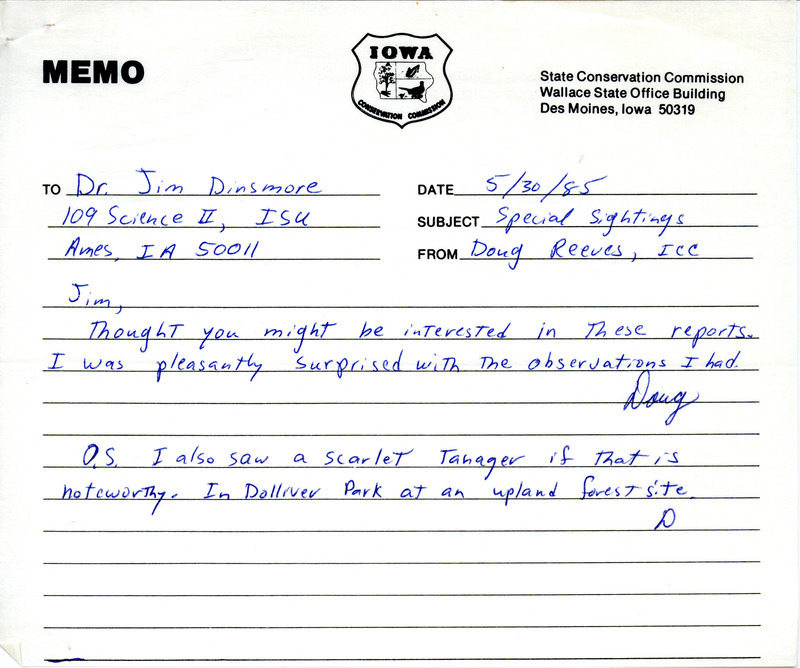 MEMO
IOWA
CONSERVATION COMMISSION
State Conservation Commission
Wallace State Office Building
Des Moines, Iowa 50319
TO Dr. Jim Dinsmore
109 Science II, ISU
Ames, IA 50011
DATE 5/30/85
SUBJECT Special Sightings
FROM Doug Reeves, ICC
Jim,
Thought you might be interested in these reports.
I was pleasantly surprised with the observations I had.
Doug
O.S. I also saw a scarlet Tanager if that is
noteworthy. In Dolliver Park at an upland forest site.
D